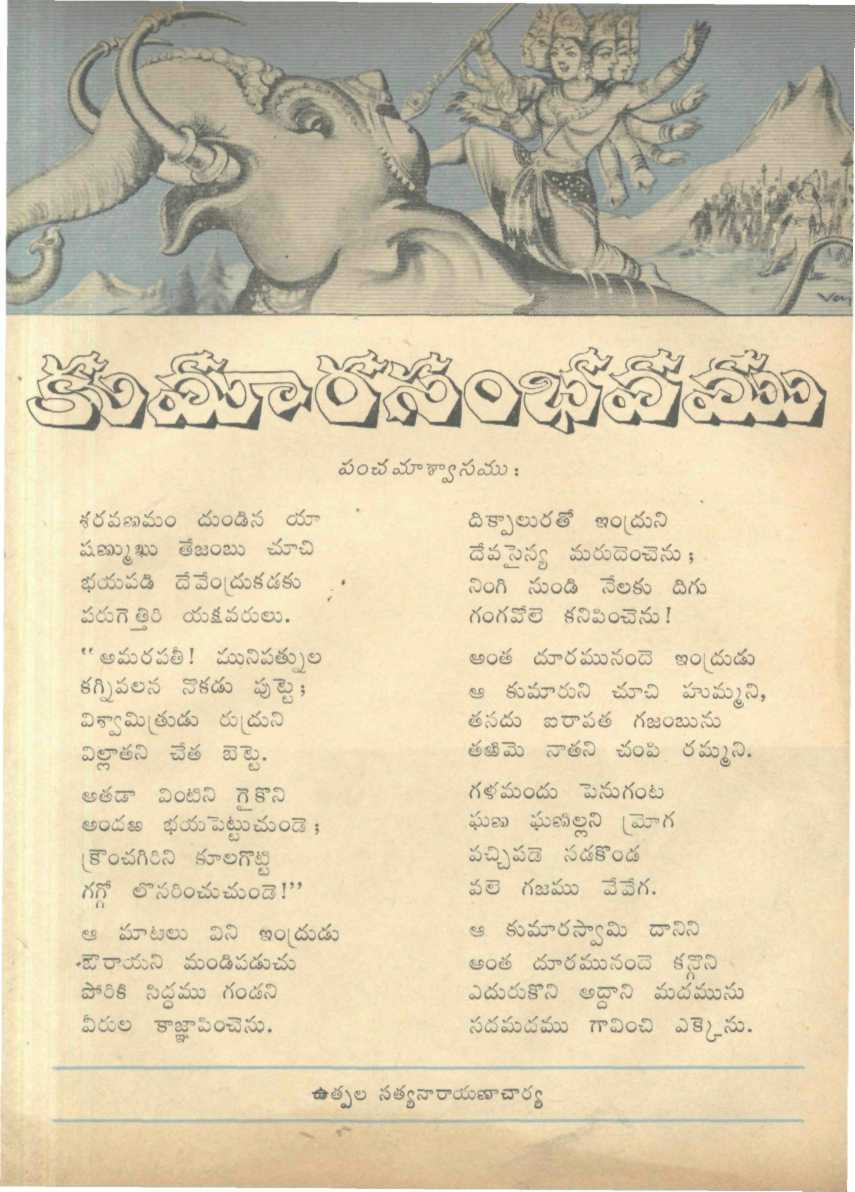 కుమారసంభవము
పంచమాశ్వాసము :
శరవణమం దుండిన యా
షణ్ముఖు తేజంబు చూచి
భయపడి దేవేంద్రుకడకు
పరుగెత్తిరి యక్షవరులు.
“అమరపతీ! మునిపత్నుల
కగ్నివలన నొకడు పుట్టె;
విశ్వామిత్రుడు రుద్రుని
విల్లాతని చేత బెట్టె.
అతడా వింటిని గైకొని
అందఱ భయపెట్టుచుండె;
క్రౌంచగిరిని కూలగొట్టి
గగ్గో లొసరించుచుండె!”
ఆ మాటలు విని ఇంద్రుడు
ఔరాయని మండిపడుచు
పోరికి సిద్ధము గండని
వీరుల కాజ్ఞాపించెను.
దిక్పాలురతో ఇంద్రుని
దేవసైన్య మరుదెంచెను;
నింగి నుండి నేలకు దిగు
గంగవోలె కనిపించెను!
అంత దూరమునందె ఇంద్రుడు
ఆ కుమారుని చూచి హుమ్మని,
తనదు ఐరావత గజంబును
తఱిమె నాతని చంపి రమ్మని.
గళమందు పెనుగంట
ఘణ ఘణిల్లని మ్రోగ
వచ్చిపడె నడకొండ
వలె గజము వేవేగ.
ఆ కుమారస్వామి దానిని
అంత దూరమునందె కన్గొని
ఎదురుకొని అద్దాని మదమును
సదమదము గావించి ఎక్కెను.
ఉత్పల సత్యనారాయణాచార్య